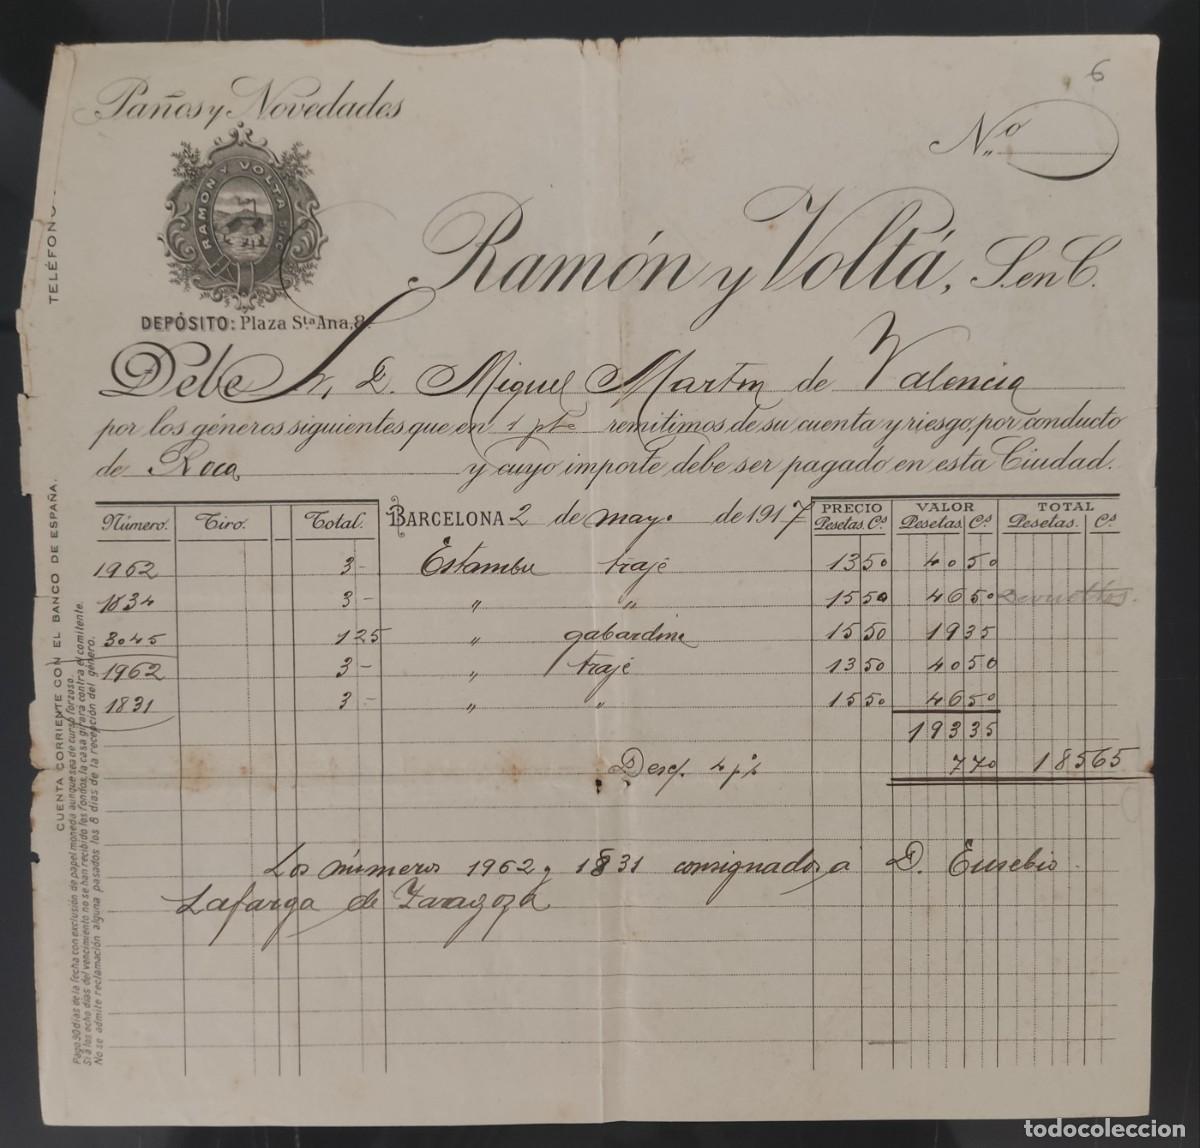 6
Paños y Novedades
Nº
RAMON Y VOLTA S. en C.
Ramón y Voltá, S. en C.
DEPÓSITO: Plaza Sta Ana, 8.
Debe Sr. D. Miguel Martin de Valencia
por los géneros siguientes que en 1 pte remitimos de su cuenta y riesgo, por conducto
de Roca y cuyo importe debe ser pagado en esta Ciudad.
Número. Tiro. Total. BARCELONA 2 de mayo de 1917 PRECIO Pesetas. Cs. VALOR Pesetas Cs TOTAL Pesetas. Cs.
1962 3- Estambre traje 13 50 40 50
1834 3- " " 15 50 46 50 Devueltos.
3045 1 25 " gabardine 15 50 19 35
1962 3- " traje 13 50 40 50
1831 3- " " 15 50 46 50
193 35
Desc. 4 p% 7 70 185 65
Los números 1962 y 1831 consignados a D. Eusebio
Lafarga de Zaragoza
TELÉFONO
CUENTA CORRIENTE CON EL BANCO DE ESPAÑA.
Pago 90 días de la fecha con exclusión de papel moneda aunque sea de curso forzoso.
Si á los ocho días del vencimiento no se han recibido los fondos, la casa girará contra el comitente.
No se admite reclamación alguna pasados los 8 días de la recepción del género.
todocoleccion